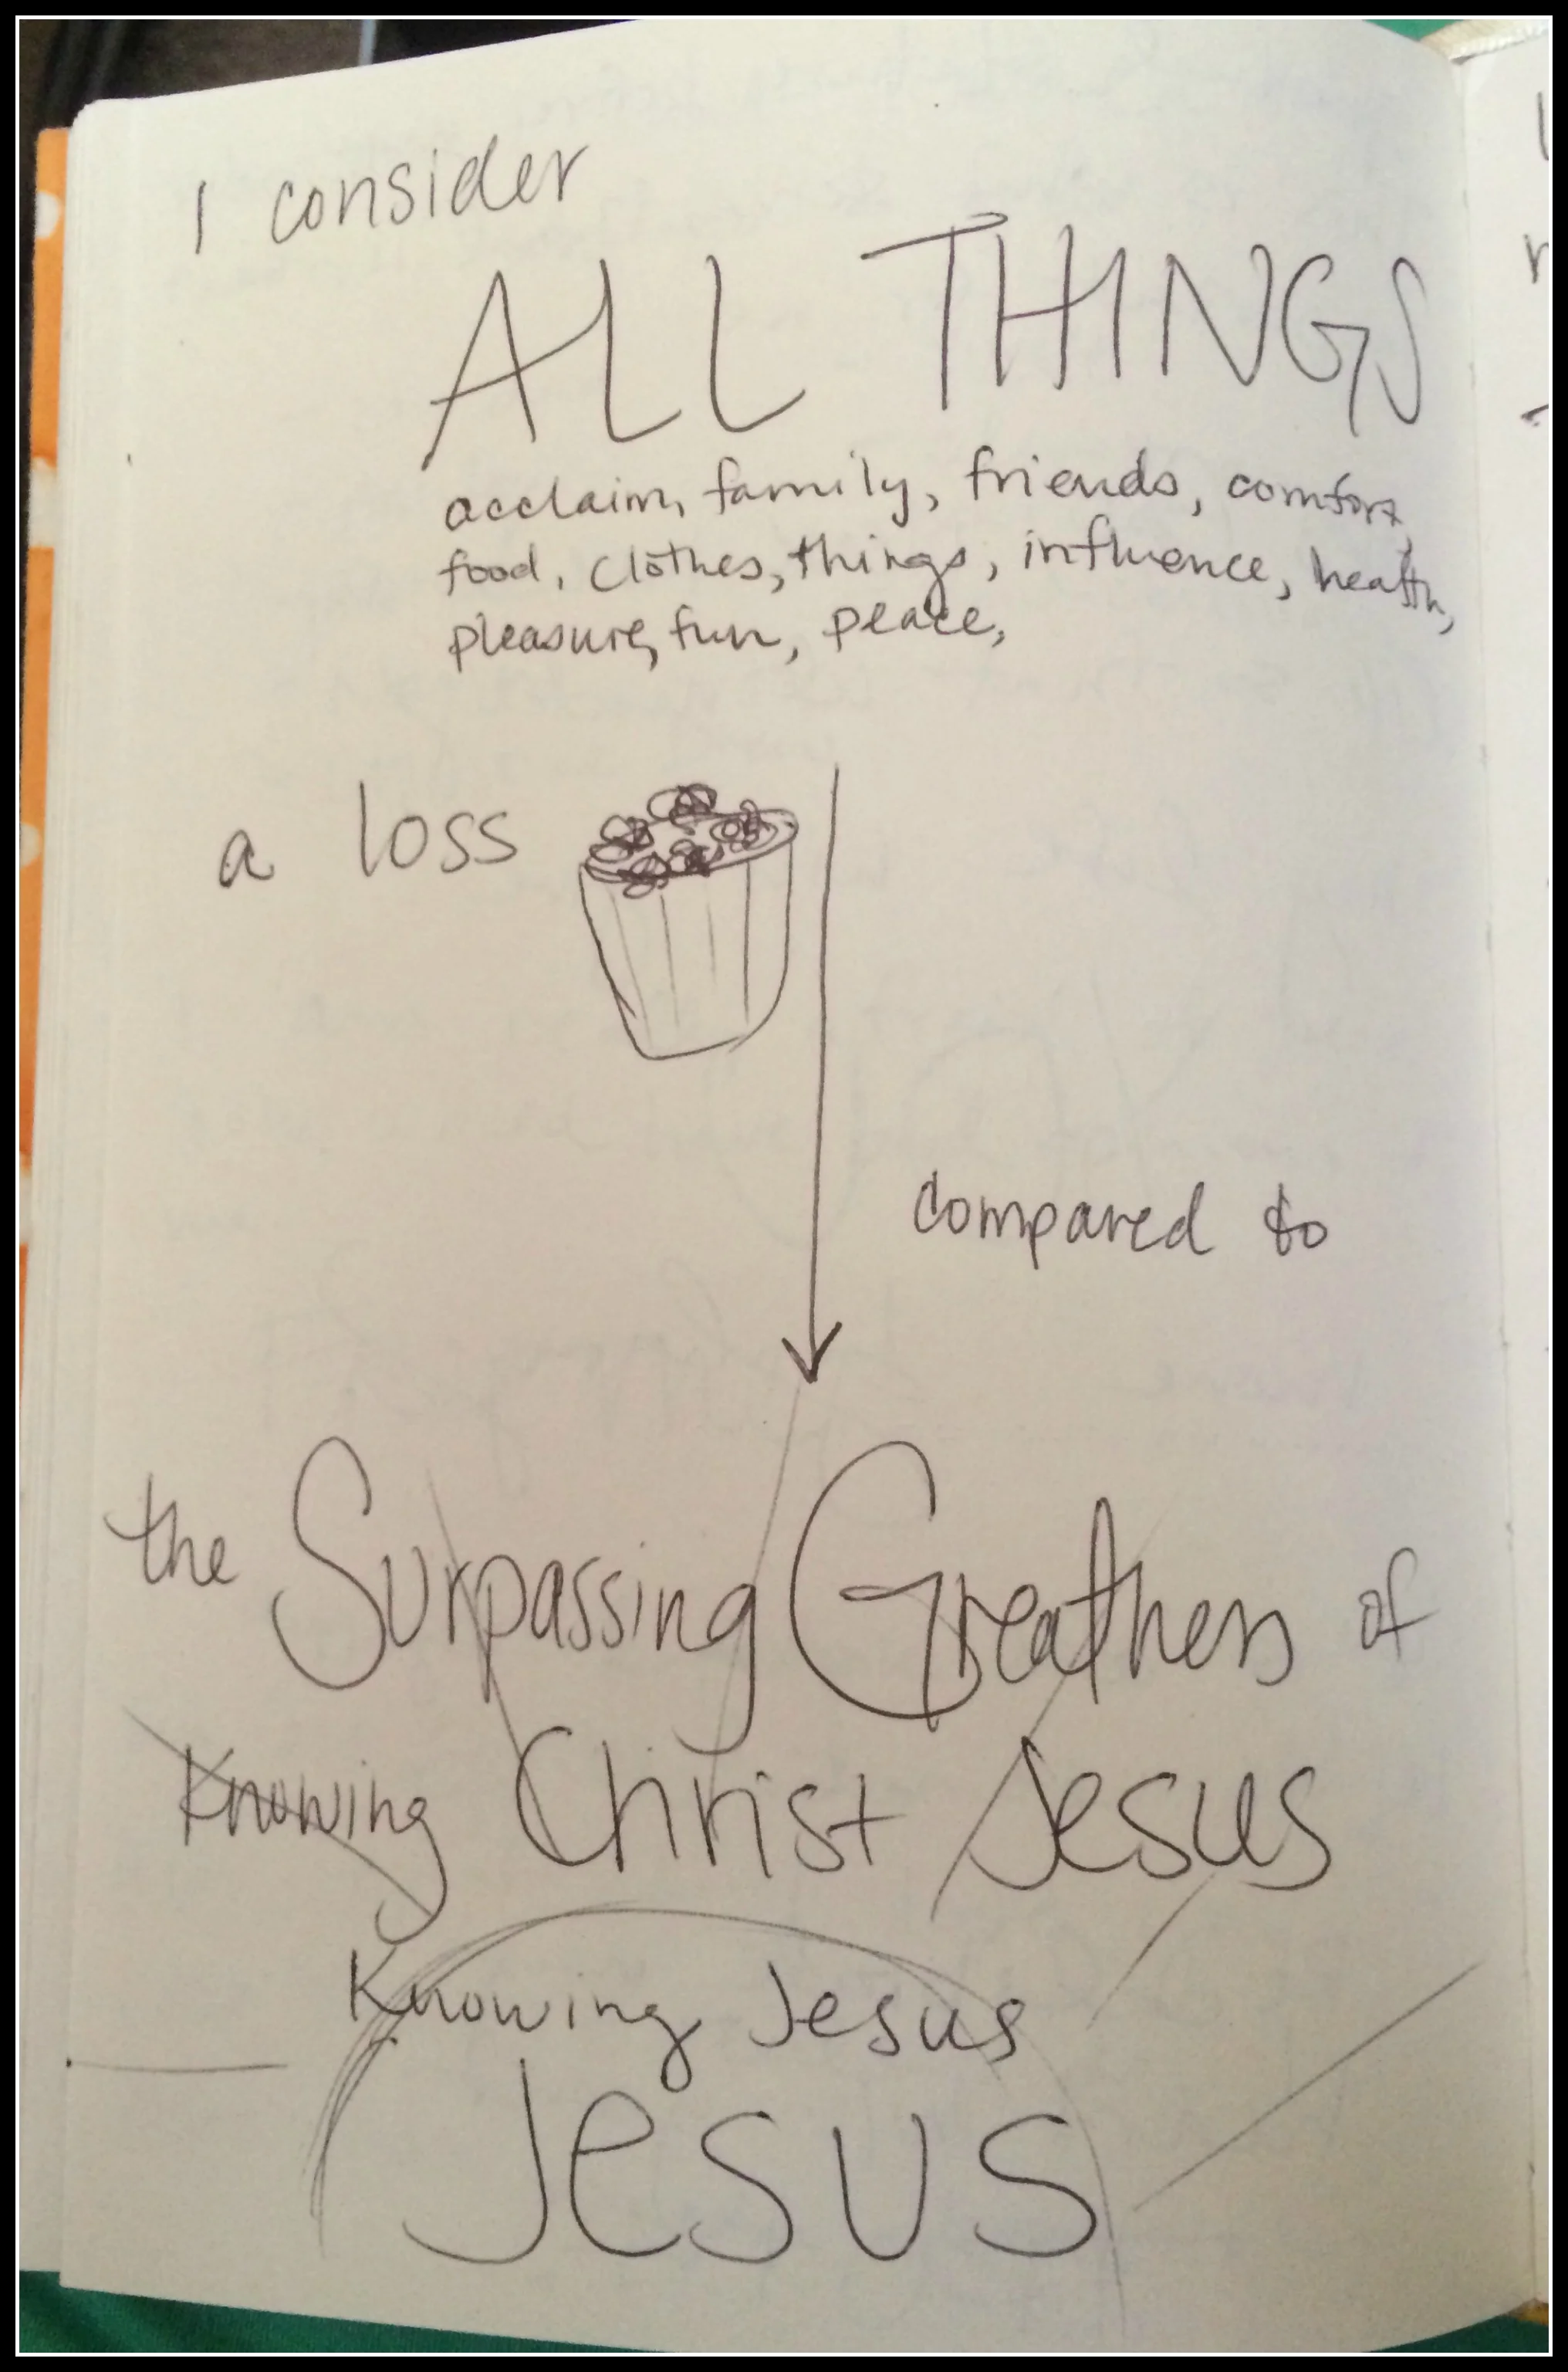 I consider
ALL THINGS
acclaim, family, friends, comfort,
food, clothes, things, influence, health,
pleasure, fun, peace,
a loss
compared to
the Surpassing Greatness of
Knowing Christ Jesus
Knowing Jesus
Jesus